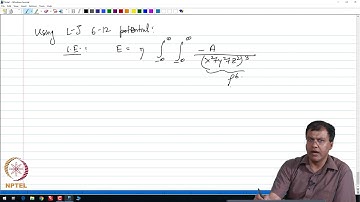 Using L-J 6-12 potential:
I.E.: E = η ∫_{-∞}^{∞} ∫_{-∞}^{∞} -A / (x²+y²+z²)³
ρ⁶
NPTEL